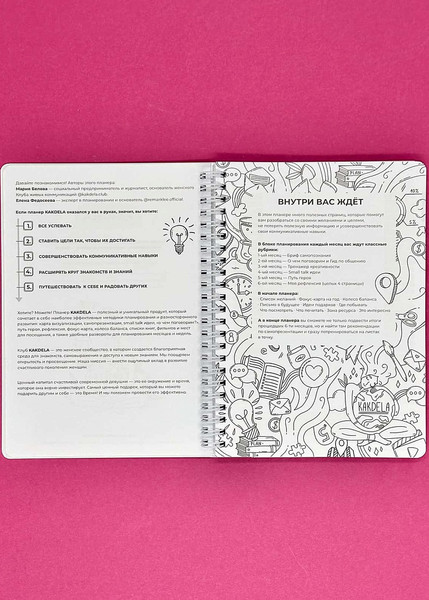 Давайте познакомимся! Авторы этого планера:
Мария Беляева — социальный предприниматель и журналист, основатель женского
Клуба живых коммуникаций @kakdela.club
Елена Федосеева — эксперт в планировании и основатель
Если планер KAKDELA оказался у вас в руках, значит, вы хотите:
1. ВСЕ УСПЕВАТЬ
2. СТАВИТЬ ЦЕЛИ ТАК, ЧТОБЫ ИХ ДОСТИГАТЬ
3. СОВЕРШЕНСТВОВАТЬ КОММУНИКАТИВНЫЕ НАВЫКИ
4. РАСШИРЯТЬ КРУГ ЗНАКОМСТВ И ЗНАНИЙ
5. ПУТЕШЕСТВОВАТЬ К СЕБЕ И РАДОВАТЬ ДРУГИХ
Хотите? Можете! Планер KAKDELA — полезный и уникальный продукт, который
сочетает в себе максимально эффективные методики планирования и разностороннего
развития: карта визуализации, самопрезентации, small talk идеи, о чем поговорить,
путь героя, рефлексия, фокус-карта, колесо баланса, списки книг, фильмов и мест
для посещения, а также удобные развороты для планирования месяца и недель.
Клуб KAKDELA — это женское сообщество, в котором создается благоприятная
среда для знакомств, самовыражения и доступа к новым знаниям. Мы поощряем
открытость и просвещение. Наша миссия — внести ощутимый вклад в развитие
счастливого поколения женщин.
Ценный капитал счастливой современной девушки — это ее окружение и время,
которое она верно инвестирует. Самый ценный подарок, который вы можете
подарить другим и себе — это Время! И мы поможем провести его эффективно.
ВНУТРИ ВАС ЖДЁТ
В этом планере много полезных страниц, которые помогут
вам разобраться со своими желаниями и целями,
не потерять полезную информацию и усовершенствовать
свои коммуникативные навыки.
В блоке планирования каждый месяц вас ждут классные
рубрики:
1-ый месяц — Бриф самопознания
2-ой месяц — О чем поговорим и Гид по общению
3-ий месяц — Тренажер креативности
4-ый месяц — Small talk идеи
5-ый месяц — Путь героя
6-ой месяц — Моя рефлексия (целых 4 страницы)
В начале планера:
Список желаний · Фокус-карта на год · Колесо баланса
Письмо в будущее · Идеи подарков · Где побывать
Что посмотреть · Что почитать · Зона ресурса · Это интересно
А в конце планера вы сможете не только подвести итоги
прошедших 6-ти месяцев, но и найти там рекомендации
по самопрезентации и сразу потренироваться на листах
в точку.
PLAN
KAKDELA
PLAN